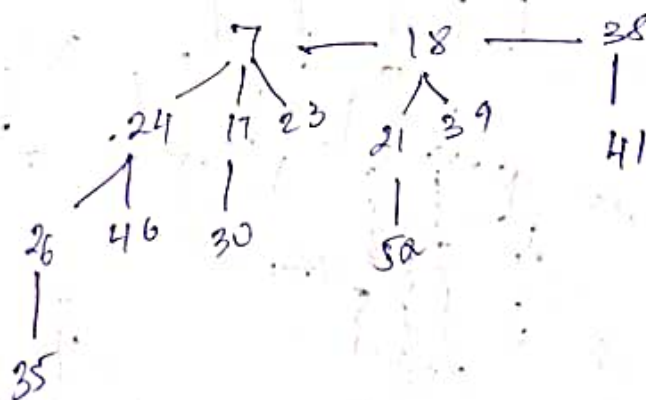 7 18 38
24 17 23 21 39 41
26 46 30 52
35